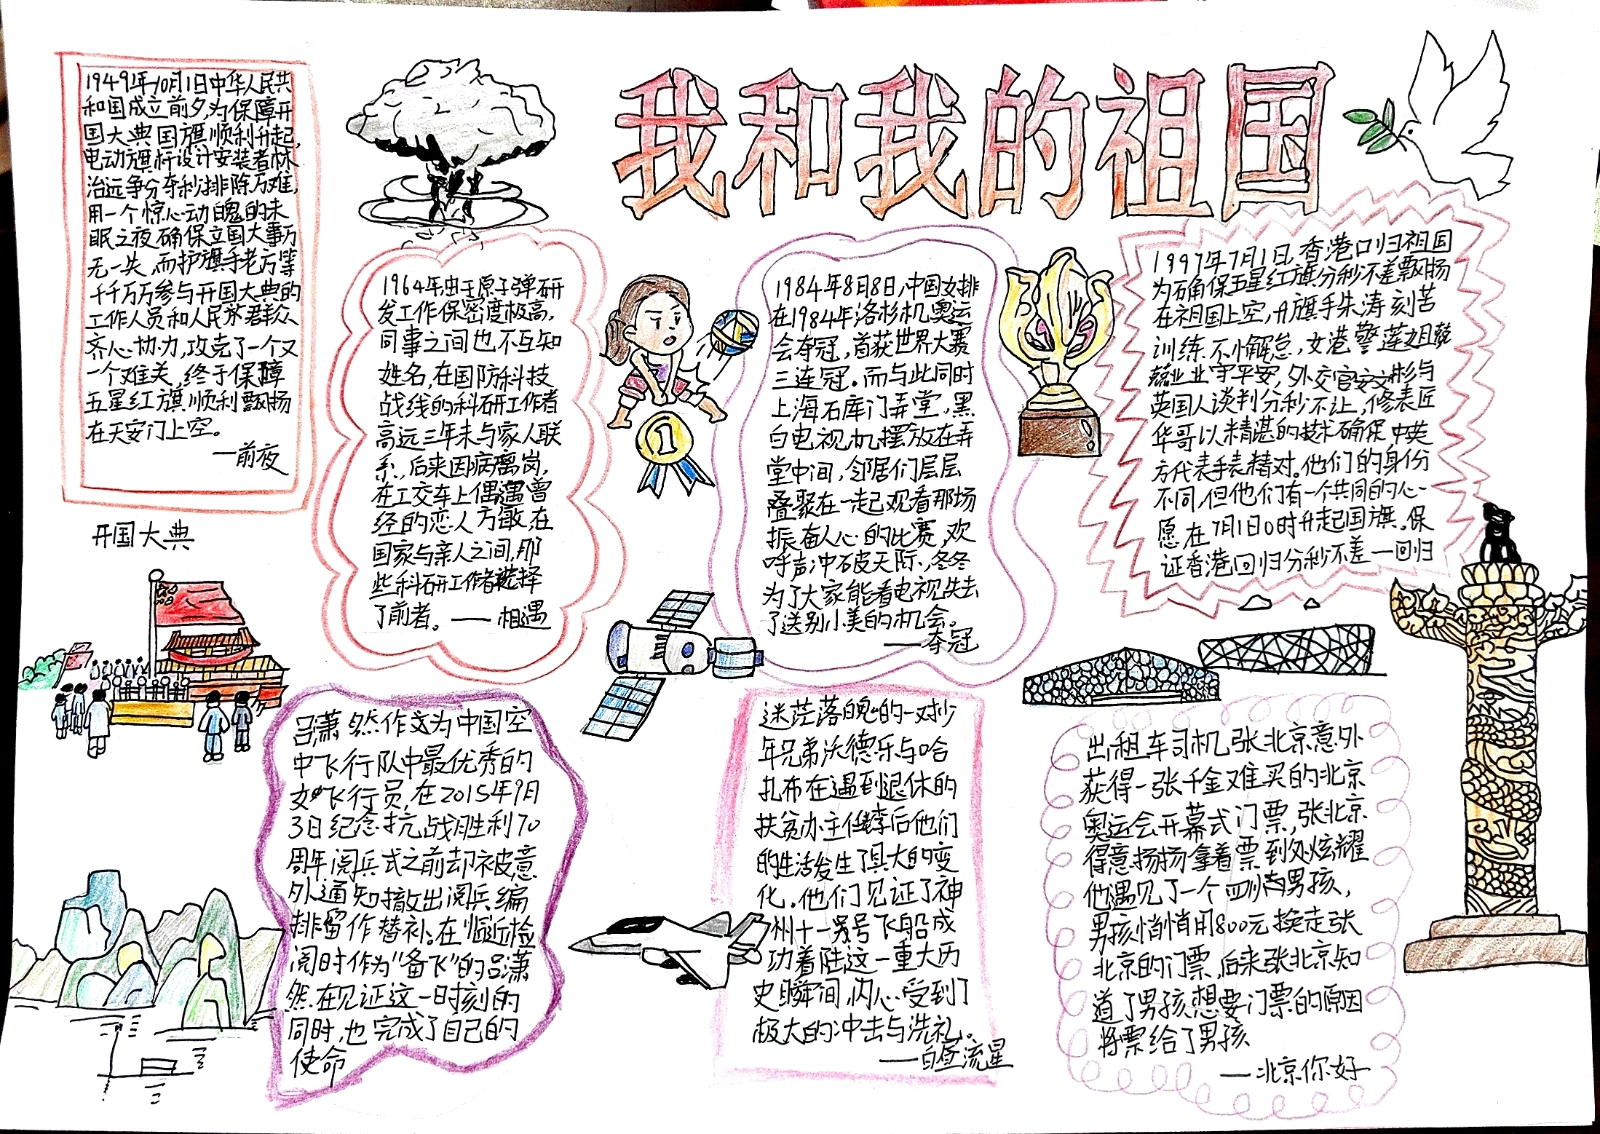 我和我的祖国
1949年10月1日中华人民共
和国成立前夕,为保障开
国大典国旗顺利升起,
电动旗杆设计安装者林
治远争分夺秒排除万难,
用一个惊心动魄的未
眠之夜确保立国大事万
无一失,而护旗手老方等
千千万万参与开国大典的
工作人员和人民群众
齐心协力,攻克了一个又
一个难关,终于保障
五星红旗顺利飘扬
在天安门上空。
—前夜
开国大典
1964年由于原子弹研
发工作保密度极高,
同事之间也不互知
姓名,在国防科技
战线的科研工作者
高远三年未与家人联
系,后来因病离岗,
在工交车上偶遇曾
经的恋人方敏,在
国家与亲人之间,那
些科研工作者选择
了前者。——相遇
1984年8月8日,中国女排
在1984年洛杉机奥运
会夺冠,首获世界大赛
三连冠。而与此同时
上海石库门弄堂,黑
白电视机摆放在弄
堂中间,邻居们层层
叠聚在一起观看那场
振奋人心的比赛,欢
呼声冲破天际、冬冬
为了大家能看电视失去
了送别小美的机会。
——夺冠
1997年7月1日,香港回归祖国
为确保五星红旗分秒不差飘扬
在祖国上空,升旗手朱涛刻苦
训练不懈怠,女港警莲姐兢
兢业业守平安,外交官安文彬与
英国人谈判分秒不让,修表匠
华哥以精湛的技术确保中英
方代表手表精对。他们的身份
不同,但他们有一个共同的心
愿在7月1日0时升起国旗、保
证香港回归分秒不差—回归
吕潇然作文为中国空
中飞行队中最优秀的
女飞行员,在2015年9月
3日纪念抗战胜利70
周年阅兵式之前却被意
外通知撤出阅兵编
排留作替补。在临近检
阅时作为“备飞”的吕潇
然在见证这一时刻的
同时,也完成了自己的
使命
迷茫落魄的一对少
年兄弟沃德乐与哈
扎布在遇到退休的
扶贫办主任李后他们
的生活发生了具大的变
化。他们见证了神
州十一号飞船成
功着陆这一重大历
史瞬间,内心受到了
极大的冲击与洗礼。
——白昼流星
出租车司机张北京意外
获得一张千金难买的北京
奥运会开幕式门票,张北京
得意扬扬拿着票到处炫耀
他遇见了一个四川男孩,
男孩悄悄用800元换走张
北京的门票后来张北京知
道了男孩想要门票的原因
将票给了男孩
—北京你好
1